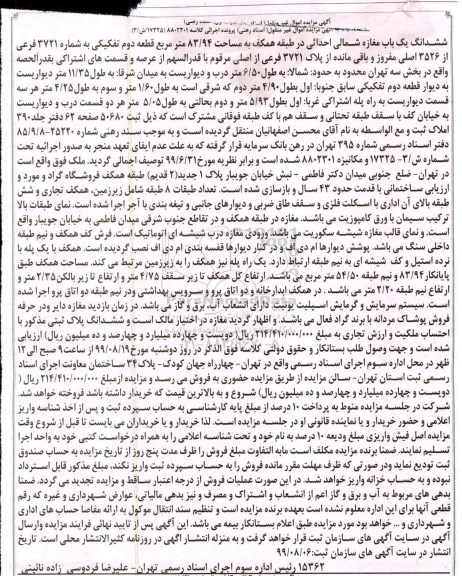 آگهی مزایده اموال غیر منقول (اسناد رهنی) پرونده اجرائی کلاسه ۸۸۰۲۳۰۱ (۱۷۳۲۵/ش/۳)
ششدانگ یک باب مغازه شمالی احداثی در طبقه همکف به مساحت ۸۳/۹۴ متر مربع قطعه دوم تفکیکی به شماره ۳۷۲۱ فرعی
از ۳۵۲۶ اصلی مفروز و باقی مانده از پلاک ۳۷۲۱ فرعی از اصلی مرقوم با قدرالسهم از عرصه و قسمت های اشتراکی بقدرالحصه
واقع در بخش سه تهران محدود به حدود: شمالا: به طول ۶/۵۰ متر درب و دیواریست به میدان شرقا: به طول ۱۱/۳۵ متر دیواریست
به دیوار قطعه دوم تفکیکی سابق جنوبا: اول بطول ۴/۹۰ متر دوم که شرقی است به طول ۱/۶۰ متر و سوم به طول ۴/۲۵ متر هر سه
قسمت دیواریست به راه پله اشتراکی غربا: اول بطول ۵/۹۳ متر و دوم بحالتی به طول ۵/۰۵ متر هر دو قسمت درب و دیوارست
به خیابان کف با سقف طبقه تحتانی و سقف هم با کف طبقه فوقانی مشترک است که ذیل ثبت ۵۰۶۸۰ صفحه ۶۲ دفتر جلد ۳۹۰
املاک ثبت و مع الواسطه به نام آقای محسن اصفهانیان منتقل گردیده است و به موجب سند رهنی شماره ۲۵۲۲۰-۸۵/۹/۸
دفتر اسناد رسمی شماره ۳۹۵ تهران در رهن بانک سرمایه قرار گرفته که به علت عدم ایفای تعهد منجر به صدور اجرائیه تحت
شماره ش/۳- ۱۷۳۲۵ و مکانیزه ۸۸۰۲۳۰۱ شده است و برابر نظریه مورخ ۹۹/۶/۳۱ توصیف اجمالی گردید. ملک فوق واقع است
در تهران- ضلع جنوبی میدان دکتر فاطمی - نبش خیابان جویبار پلاک ۱ جدید(۲ قدیم) طبقه همکف فروشگاه گراد و مورد
ارزیابی ساختمانی با قدمت حدود ۴۳ سال و بازسازی شده است. تعداد طبقات ۸ طبقه شامل زیرزمین، همکف تجاری و شش
طبقه بالای آن اداری با اسکلت فلزی و سقف طاق ضربی و دیوارهای جانبی و تیغه بندی با آجر اجرا شده است. نمای طبقات بالا
ترکیب سیمان با ورق کامپوزیت می باشد. مغازه در طبقه همکف و در تقاطع جنوب شرقی میدان فاطمی به خیابان جویبار واقع
است و نمای قالب مغازه شیشه سکوریت می باشد ورودی مغازه درب شیشه ای اتوماتیک است. فرش کف همکف و نیم طبقه
داخلی سنگ می باشد. پوشش دیوارها ام دی اف و در کنار دیوارها قفسه بندی ام دی اف نصب گردیده است. همکف با یک پله با
نرده استیل و کف شیشه ای به نیم طبقه ارتباط دارد. یک راه پله نیز همکف را به زیرزمین مرتبط می کند. مساحت همکف طبق
پایانکار ۸۳/۹۴ و نیم طبقه ۵۴/۵۰ متر مربع می باشد. ارتفاع کل همکف تا زیر سقف ۴/۷۵ متر و ارتفاع تا زیر بالکن ۲/۳۵ متر و
ارتفاع نیم طبقه ۲/۲۰ متر می باشد. در همکف آبدارخانه و دو اتاق پرو و سرویس بهداشتی و در نیم طبقه دو اتاق پرو اجرا شده
است. سیستم سرمایش و گرمایش اسپلیت یونیت، دارای انشعاب آب، برق و گاز می باشد. در زمان بازدید مغازه دایر و در حرفه
فروش پوشاک مردانه با برند گراد فعال می باشد. و اظهار گردید مغازه در اختیار مالک است و ششدانگ پلاک ثبتی مذکور با
احتساب ملکیت و ارزش تجاری به مبلغ ۲۱۴/۴۱۰/۰۰۰/۰۰۰ ریال (دویست و چهارده میلیارد و چهارصد و ده میلیون ریال) ارزیابی
شده است و جهت وصول طلب بستانکار و حقوق دولتی کلاسه فوق الذکر در روز دوشنبه مورخ ۹۹/۰۸/۱۹ از ساعت ۹ صبح الی ۱۲
ظهر در محل اداره سوم اجرای اسناد رسمی واقع در تهران- چهارراه جهان کودک- پلاک ۳۴ ساختمان معاونت اجرای اسناد
رسمی ثبت استان تهران- سالن مزایده از طریق مزایده حضوری به فروش می رسد و مزایده از مبلغ ۲۱۴/۴۱۰/۰۰۰/۰۰۰ ریال (
دویست و چهارده میلیارد و چهارصد و ده میلیون ریال) شروع و به بالاترین قیمت که خریدار داشته باشد فروخته خواهد شد.
شرکت در جلسه مزایده منوط به پرداخت ۱۰ درصد از مبلغ پایه کارشناسی به حساب سپرده ثبت و پس از اخذ شناسه واریز
اعلامی و حضور خریدار و یا نماینده قانونی او در جلسه مزایده است. لذا خریدار و یا خریداران می بایست تا قبل از شروع وقت
مزایده اصل فیش واریزی مبلغ ودیعه ۱۰ درصد به نام خود و تحت شناسه اعلامی را به همراه درخواست کتبی خود به واحد اجرا
تسلیم نمایند. ضمنا برنده مزایده مکلف است مابه التفاوت مبلغ فروش را ظرف مدت پنج روز از تاریخ مزایده به حساب صندوق
ثبت تودیع نماید ودر صورتی که ظرف مهلت مقرر مانده فروش را به حساب سپرده ثبت واریز نکند، مبلغ مذکور قابل استرداد
نبوده و به حساب خزانه واریز خواهد شد. در این صورت عملیات فروش از درجه اعتبار ساقط و مزایده تجدید می گردد. ضمنا
بدهی های مربوط به آب و برق و گاز اعم از انشعاب و اشتراک و مصرف و نیز بدهی مالیاتی، عوارض شهرداری و غیره که رقم
قطعی آنها برای این اداره معلوم نشده است بعهده برنده مزایده است و تنظیم سند انتقال موکول به ارائه مفاصا حساب های اداری
و شهرداری و ... خواهد بود مورد مزایده طبق اعلام بستانکار بیمه می باشد. این آگهی پس از تایید نهائی فرایند مزایده وارسال
آگهی در سایت آگهی های سازمان ثبت قرار خواهد گرفت و به منزله انتشار اگهی در روزنامه کثیرالانتشار محلی است. تاریخ
انتشار در سایت آگهی های سازمان ثبت: ۹۹/۰۸/۰۶
۱۵۳۶۲ رئیس اداره سوم اجرای اسناد رسمی تهران- علیرضا فردوسی زاده نائینی